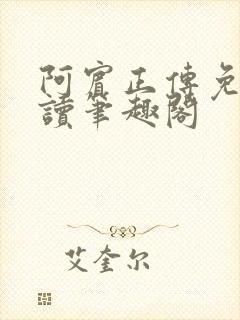 阿賓正傳免
讀筆趣閣
艾奎尔